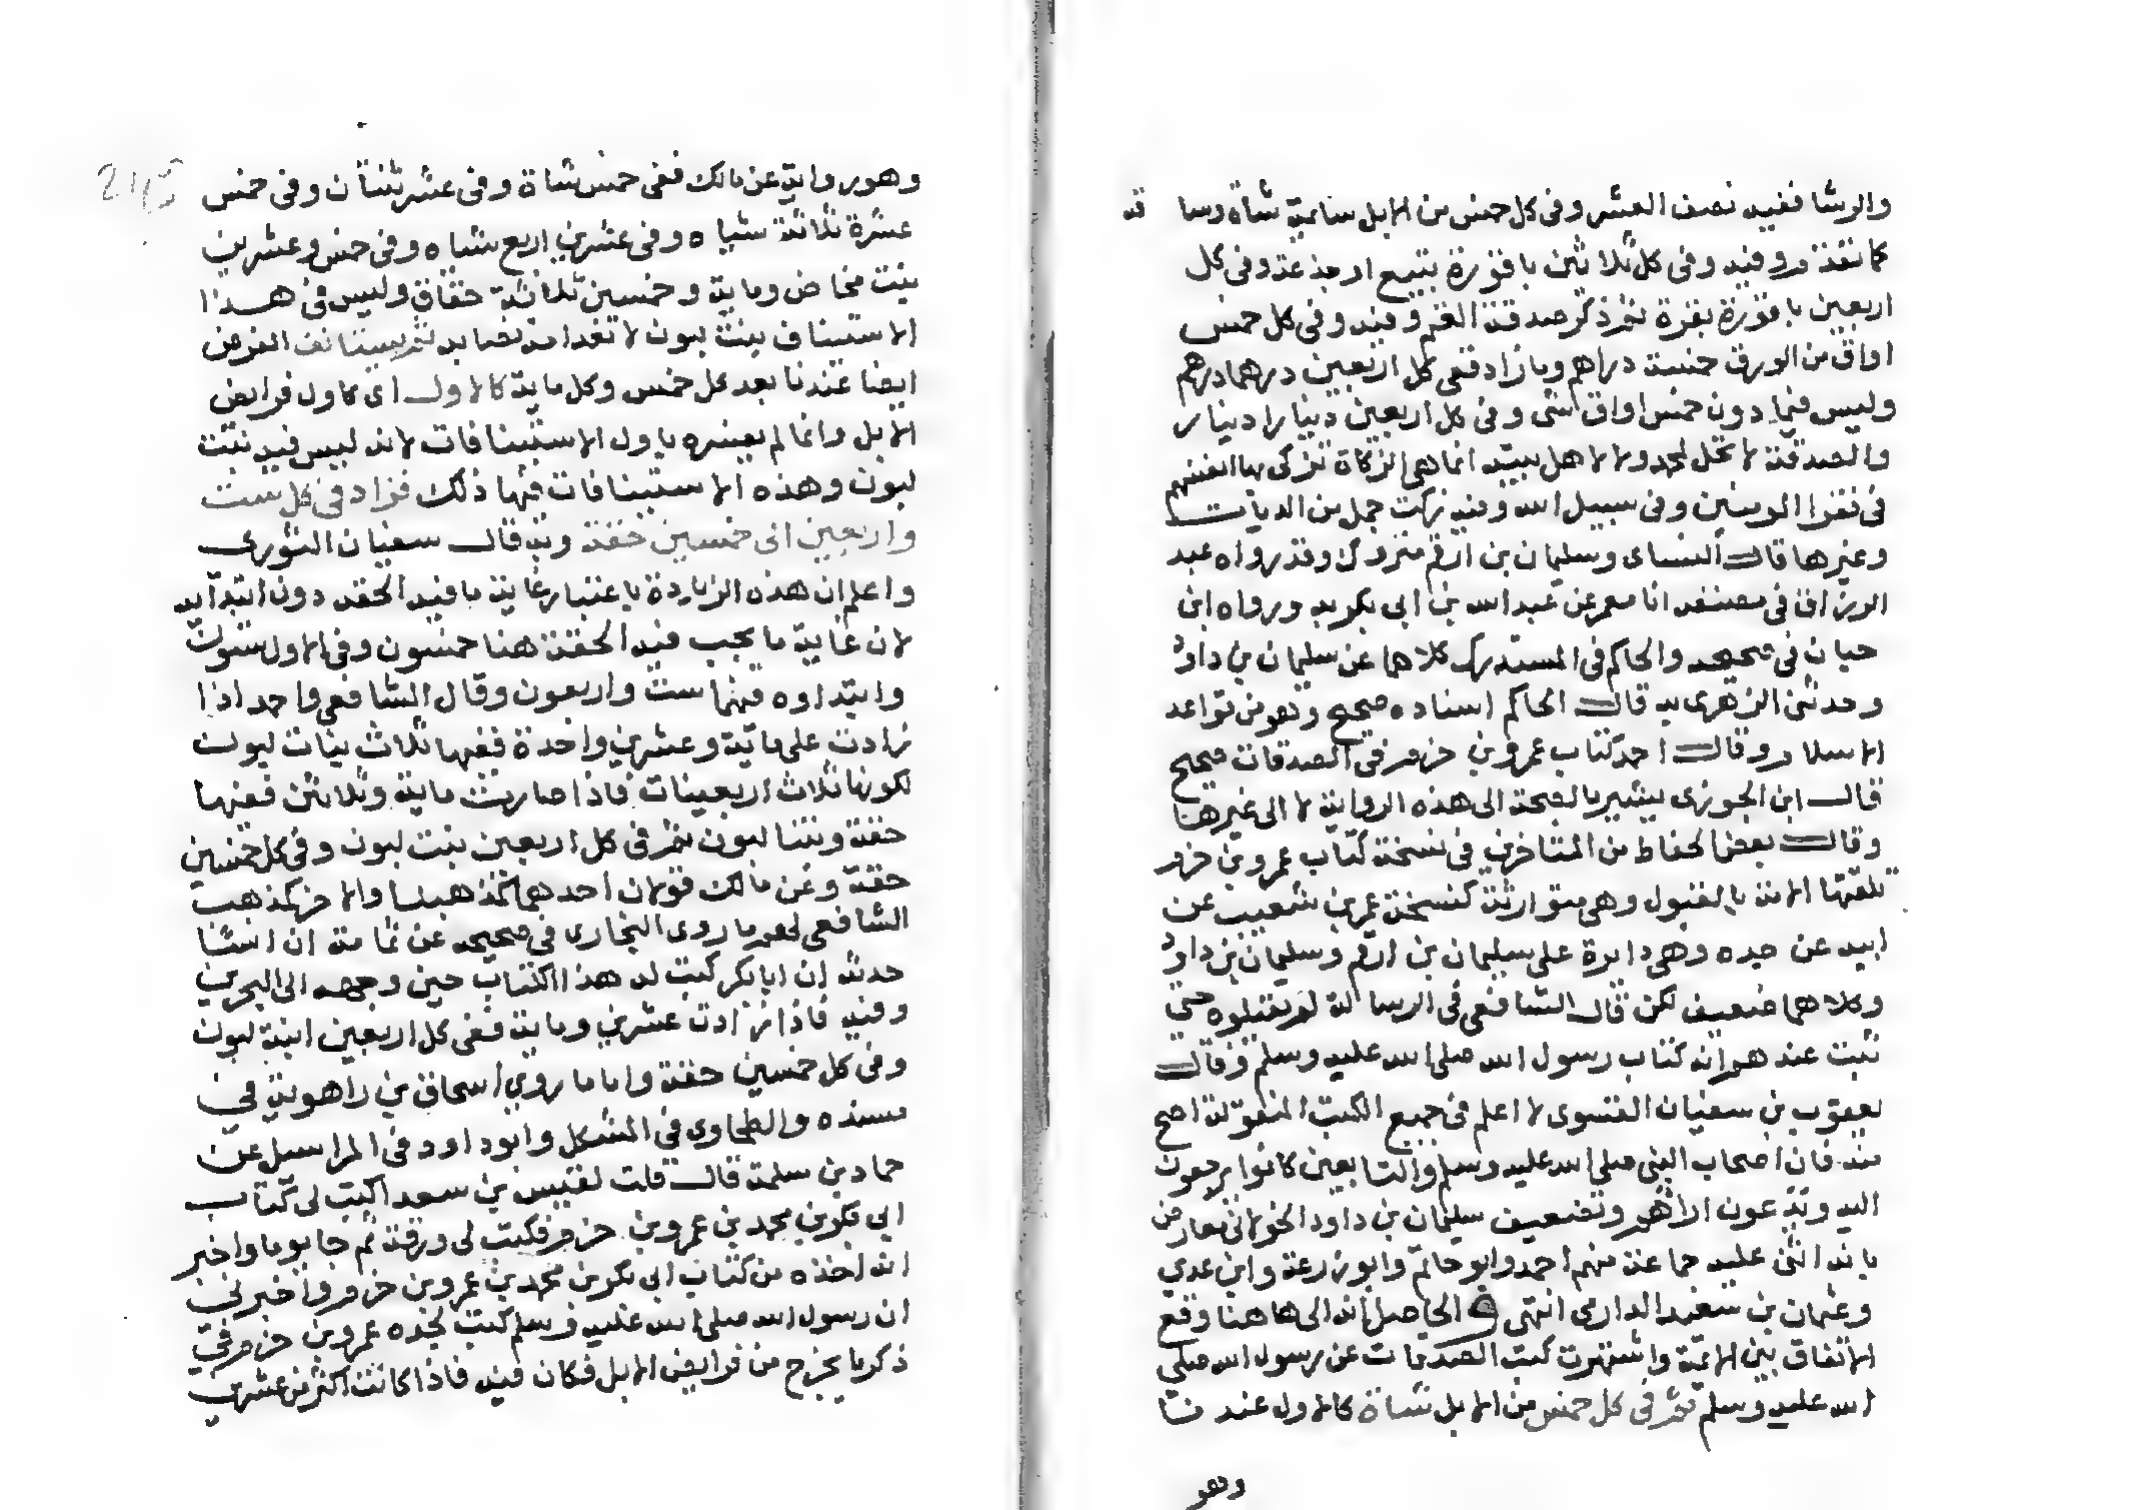 والرشا ففيه نصف العشر وفى كل خمس من الابل سائمة شاة وسا قه
كما نقذم وفيه وفى كل ثلاثين باقورة تبيع او جذعة وفى كل
اربعين باقورة بقرة ثم ذكر صدقة الغنم وفيه وفى كل خمس
اواق من الورق خمسة دراهم وما زاد ففى كل اربعين درهما درهم
وليس فيما دون خمس اواق شى وفى كل اربعين دينارا دينار
والصدقة لا تحل لمحمد ولا لاهل بيته انما هى الزكاة تزكى بها انفسهم
فى فقرا المومنين وفى سبيل الله وفيه نركت جمل من الديات
وغيرها قال النساى وسليمان بن ارقم متروك وقد رواه عبد
الرزاق فى مصنفه انا معمر عن عبد الله بن ابى بكر به ورواه ابن
حبان فى صحيحه والحاكم فى المستدرك كلاهما عن سليمان بن داود
وحدثنى الزهرى به قال الحاكم اسناده صحيح وهو من قواعد
الاسلام وقال احمد كتاب عمرو بن حزم فى الصدقات صحيح
قال ابن الجوزى يشير بالصحة الى هذه الرواية لا الى غيرها
وقال بعض الحفاظ من المتاخرين فى نسخة كتاب عمرو بن حزم
تلقتها الامة بالقبول وهى متوارثة كنسخة عمرو بن شعيب عن
ابيه عن جده وهى دايرة على سليمان بن ارقم وسليمان بن داود
وكلاهما ضعيف لكن قال الشافعى فى الرسالة لم يقبلوه حتى
ثبت عندهم انه كتاب رسول الله صلى الله عليه وسلم وقال
يعقوب بن سفيان الفسوى لا اعلم فى جميع الكتب المنقولة اصح
منه فان اصحاب النبى صلى الله عليه وسلم والتابعين كانوا يرجعون
اليه ويدعون اراهم وتضعيف سليمان بن داود الخولانى معارض
بانه اثنى عليه جماعة منهم احمد وابو حاتم وابو زرعة وابن عدي
وعثمان بن سعيد الدارمى انتهى والحاصل انه الى هاهنا وقع
الاتفاق بين الائمة واشتهرت كتب الصدقات عن رسول الله صلى
الله عليه وسلم ثم فى كل خمس من الابل شاة كالاول عندنا
وهو
وهو رواية عن مالك ففى خمس شاة وفى عشر شاتان وفى خمس
عشرة ثلاثة شياه وفى عشرين اربع شياه وفى خمس وعشرين
بنت مخاض ومايه وخمسين ثلاثة حقاق وليس فى هذا
الاستيناف بنت لبون لانعدام نصابه ثم يستانف الفرض
ايضا عندنا بعد كل خمس وكل مايه كالاول اى كاول فرايض
الابل وانما لم يفسره باول الاستينافات لانه ليس فيه بنت
لبون وهذه الاستينافات فيها ذلك فزاد فى كل ست
واربعين الى خمسين حقة وبه قال سفيان الثورى
واعلم ان هذه الزيادة باعتبار غاية ما فيه الحقه دون ابتدآيه
لان غاية ما يجب فيه الحقة هنا خمسون وفى الاول ستون
وابتداوه فيهما ست واربعون وقال الشافعى واحمد اذا
زادت على ماية وعشرين واحدة ففيها ثلاث بنات لبون
لكونها ثلاث اربعينات فاذا صارت ماية وثلاثين ففيها
حقة وبنتا لبون ثم فى كل اربعين بنت لبون وفى كل خمسين
حقة وعن مالك قولان احدهما كمذهبنا والاخر كمذهب
الشافعى لهم ما روى البخارى فى صحيحه عن ثمامة ان انسا
حدثه ان ابا بكر كتب له هذا الكتاب حين وجهه الى البحرين
وفيه فاذا زادت عشرين ومايه ففى كل اربعين ابنة لبون
وفى كل خمسين حقة واما ما روى اسحاق بن راهوية فى
مسنده والطحاوى فى المشكل وابو داود فى المراسيل عن
حماد بن سلمة قال قلت لقيس بن سعد اكتب لى كتاب
ابي بكر بن محمد بن عمرو بن حزم فكتب لى ورقة ثم جا بها واخبر
انه اخذه من كتاب ابى بكر بن محمد بن عمرو بن حزم واخبرنى
ان رسول الله صلى الله عليه وسلم كتب لجده عمرو بن حزم فى
ذكر ما يخرج من فرايض الابل فكان فيه فاذا كانت اكثر من عشرين